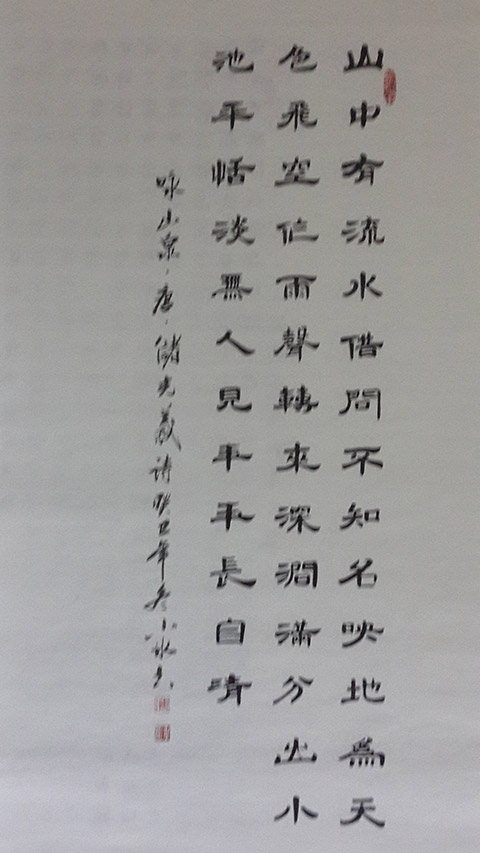 山中有流水借問不知名映地為天
色飛空作雨聲轉來深澗滿分出小
池平恬淡無人見年年長自清
咏山泉·唐·儲光羲詩癸巳年冬小冰